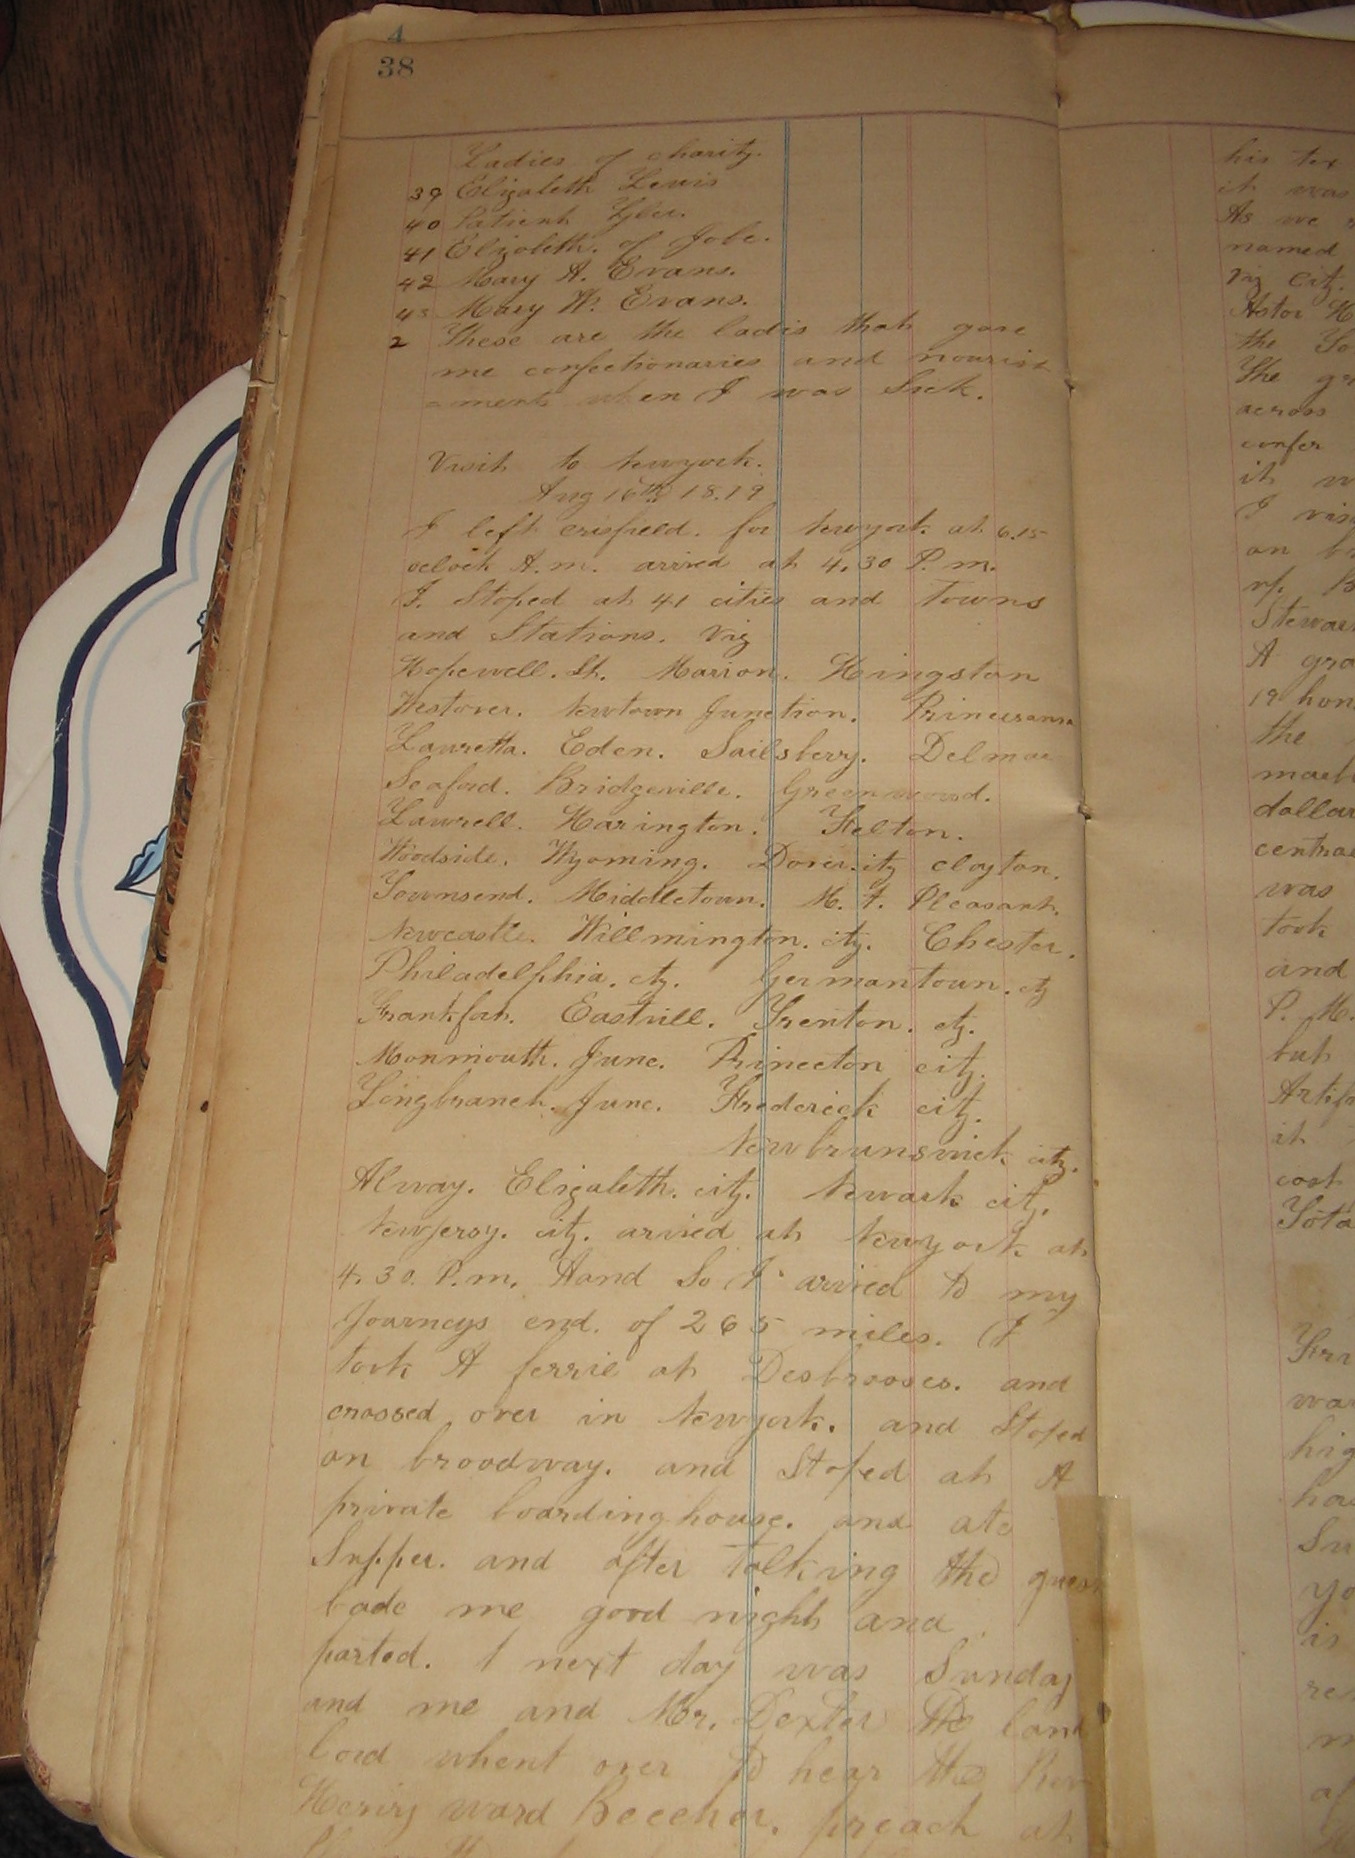 4
38
Ladies of charity.
39 Elizabeth Lewis
40 Patient Tyler.
41 Elizabeth. of Jobe.
42 Mary A. Evans.
43 Mary W. Evans.
2 These are the ladis that gave
me confectionaries and nourish
=ment when I was Sick.
Visit to Newyork.
Aug 16th 18.79
I left crisfield. for Newyork at 6.15
oclock A.m. arived at 4.30 P.m.
I. Stoped at 41 cities and Towns
and Stations. Viz
Hopewell. St. Marion. Kingston
Westover. Newtown Junction. Princesanna
Lauretta. Eden. Sailsberry. Delmar
Seaford. Bridgeville. Greenwood.
Lawrell. Harington. Felton.
Woodside. Wyoming. Dover.city clayton.
Townsend. Middletown. M.t. Pleasant.
Newcastle. Willmington. city. Chester.
Philadelphia. cty. Germantown. cty
Frankfort. Eastvill. Trenton. cty.
Monmouth. Junc. Princeton city.
Longbranch. Junc. Frederick city.
Newbrunswick city.
Alway. Elizabeth. city. Newark city.
Newjersy. city. arived at Newyork at
4.30. P.m. Hand So I arived to my
Journeys end. of 265 miles. I
took A ferrie at Desbrosses. and
crossed over in Newyork. and Stoped
on broodway. and Stoped at A
private boardinghouse. and ate
Supper. and after Talking the guest
bade me good night and
parted. 1 next day was Sunday
and me and Mr. Dexter the land
lord whent over to hear the Rev
Henry ward Beecher. preach at
his tex
it was
As we
named
viz City.
Astor H
the
The gr
across
confer
it w
I
on br
up. B
Stewar
A gra
19 hun
the
mach
dollar
central
was
took
and
P. M.
but
Artif
it
cost
Tota
Fri
was
hig
hou
Su
yo
is
re
m